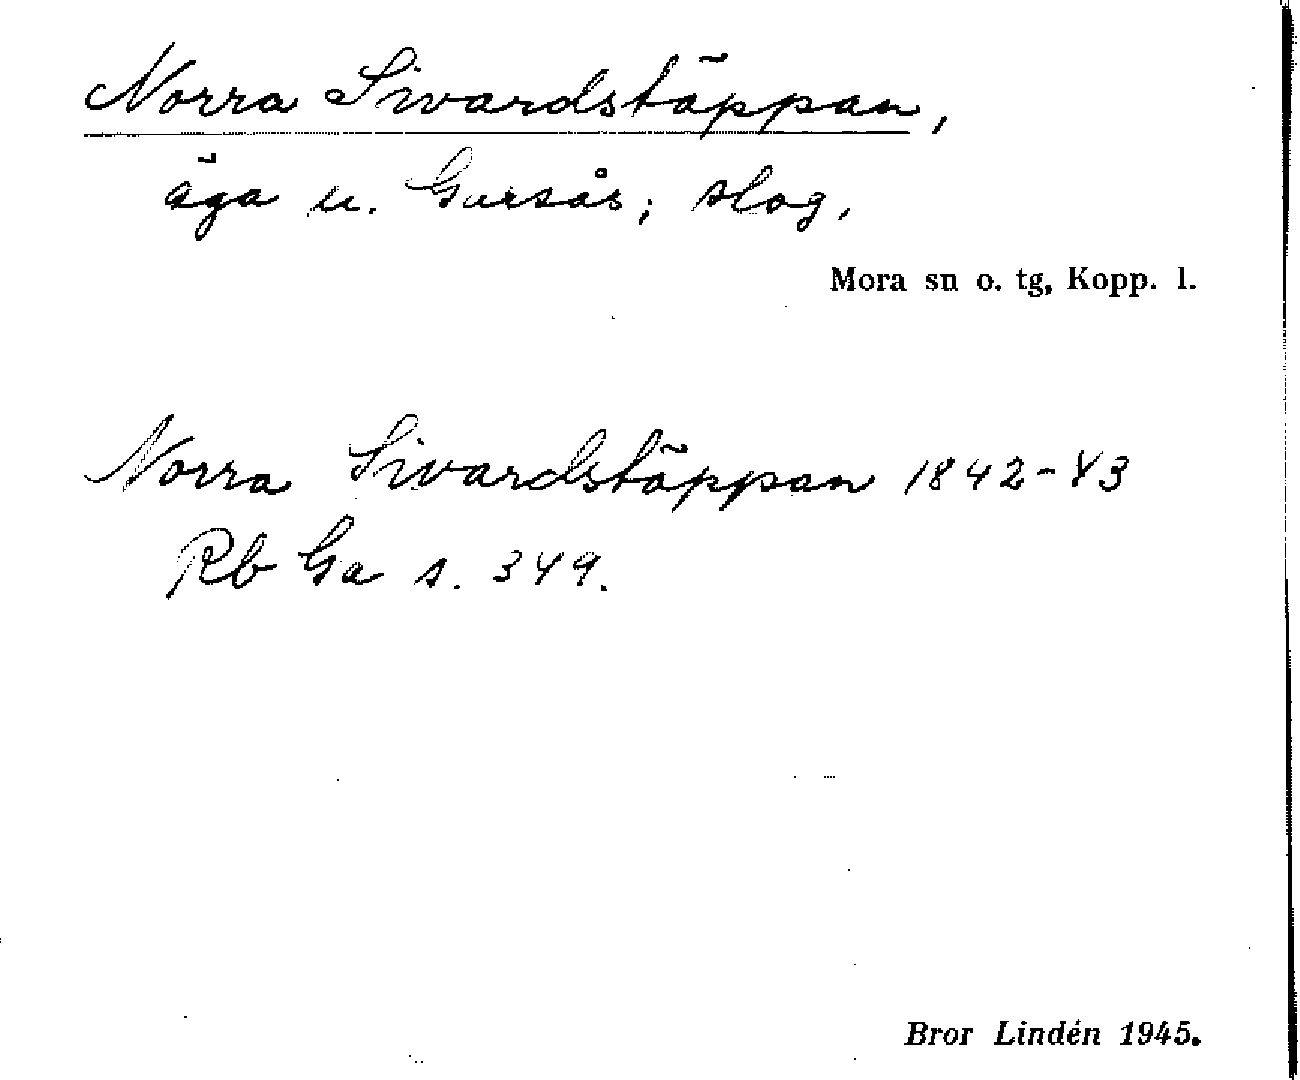 Norra Sivardstäppan,
äga u. Gursås; slog,
Mora sn o. tg, Kopp. l.
Norra Sivardstäppan 1842-43
Rb Ga s. 349.
Bror Lindén 1945.